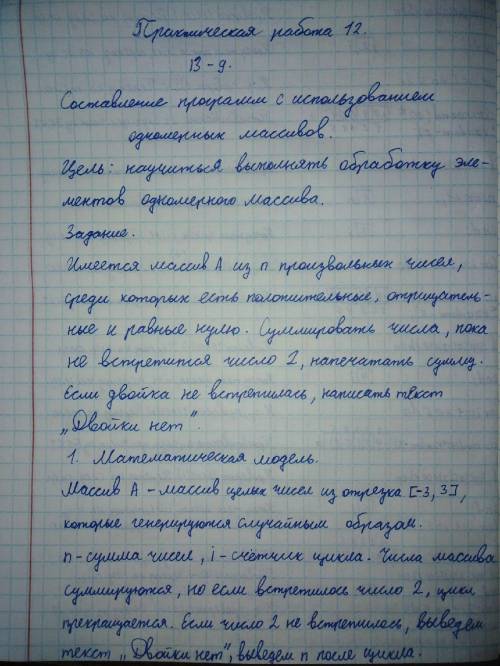 Практическая работа 12.
В-9.
Составление программ с использованием
одномерных массивов.
Цель: научиться выполнять обработку эле-
ментов одномерного массива.
Задание.
Имеется массив А из п произвольных чисел,
среди которых есть положительные, отрицатель-
ные и равные нулю. Суммировать числа, пока
не встретится число 2, напечатать сумму.
Если двойка не встретилась, написать текст
„Двойки нет".
1. Математическая модель.
Массив А - массив целых чисел из отрезка [-3, 3],
которые генерируются случайным образом.
п-сумма чисел, i-счётчик цикла. Числа массива
суммируются, но если встретилось число 2, цикл
прекращается. Если число 2 не встретилось, выведем
текст „Двойки нет", выведем п после цикла.